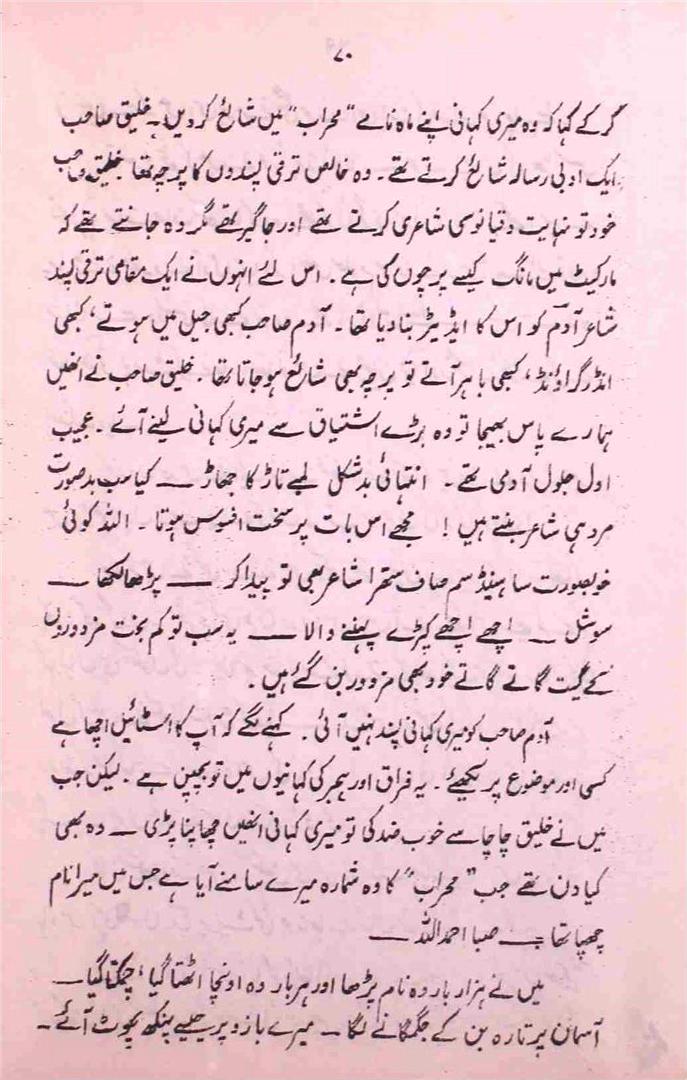 ۷۰
کر کے کہا کہ وہ میری کہانی اپنے ماہ نامے "محراب" میں شائع کر دیں۔ خلیق صاحب
ایک ادبی رسالہ شائع کرتے تھے۔ وہ خالص ترقی پسندوں کا پرچہ تھا خلیق صاحب
خود تو نہایت دقیانوسی شاعری کرتے تھے اور جاگیر تھے مگر وہ جانتے تھے کہ
مارکیٹ میں مانگ کیسے پرچوں کی ہے۔ اس لئے انہوں نے ایک مقامی ترقی پسند
شاعر آدم کو اس کا ایڈیٹر بنا دیا تھا۔ آدم صاحب کبھی جیل میں ہوتے، کبھی
انڈر گراؤنڈ، کبھی باہر آتے تو پرچہ بھی شائع ہو جاتا تھا۔ خلیق صاحب نے انھیں
ہمارے پاس بھیجا تو وہ بڑے اشتیاق سے میری کہانی لینے آئے۔ عجیب
اول جلول آدمی تھے۔ انتہائی بد شکل لمبے تاڑ کا جھاڑ — کیا سب بد صورت
مرد ہی شاعر بنتے ہیں! مجھے اس بات پر سخت افسوس ہوتا۔ اللہ کوئی
خوبصورت سا ہینڈسم صاف ستھرا شاعر بھی تو پیدا کر — پڑھا لکھا —
سوشل — اچھے اچھے کپڑے پہننے والا — یہ سب تو کم بخت مزدوروں
کے گیت گاتے گاتے خود بھی مزدور بن گئے ہیں۔
آدم صاحب کو میری کہانی پسند نہیں آئی۔ کہنے لگے کہ آپ کا اسٹائیل اچھا ہے
کسی اور موضوع پر لکھیئے۔ یہ فراق اور ہجر کی کہانیوں میں تو بچپن ہے۔ لیکن جب
میں نے خلیق چاچا سے خوب ضد کی تو میری کہانی انھیں چھاپنا پڑی — وہ بھی
کیا دن تھے جب "محراب" کا وہ شمارہ میرے سامنے آیا ہے جس میں میرا نام
چھپا تھا — صبا احمد اللہ —
میں نے ہزار بار وہ نام پڑھا اور ہر بار وہ اونچا اٹھتا گیا، چمکتا گیا —
آسمان پر تارہ بن کے جگمگانے لگا — میرے بازو پر جیسے پنکھ پھوٹ آئے۔